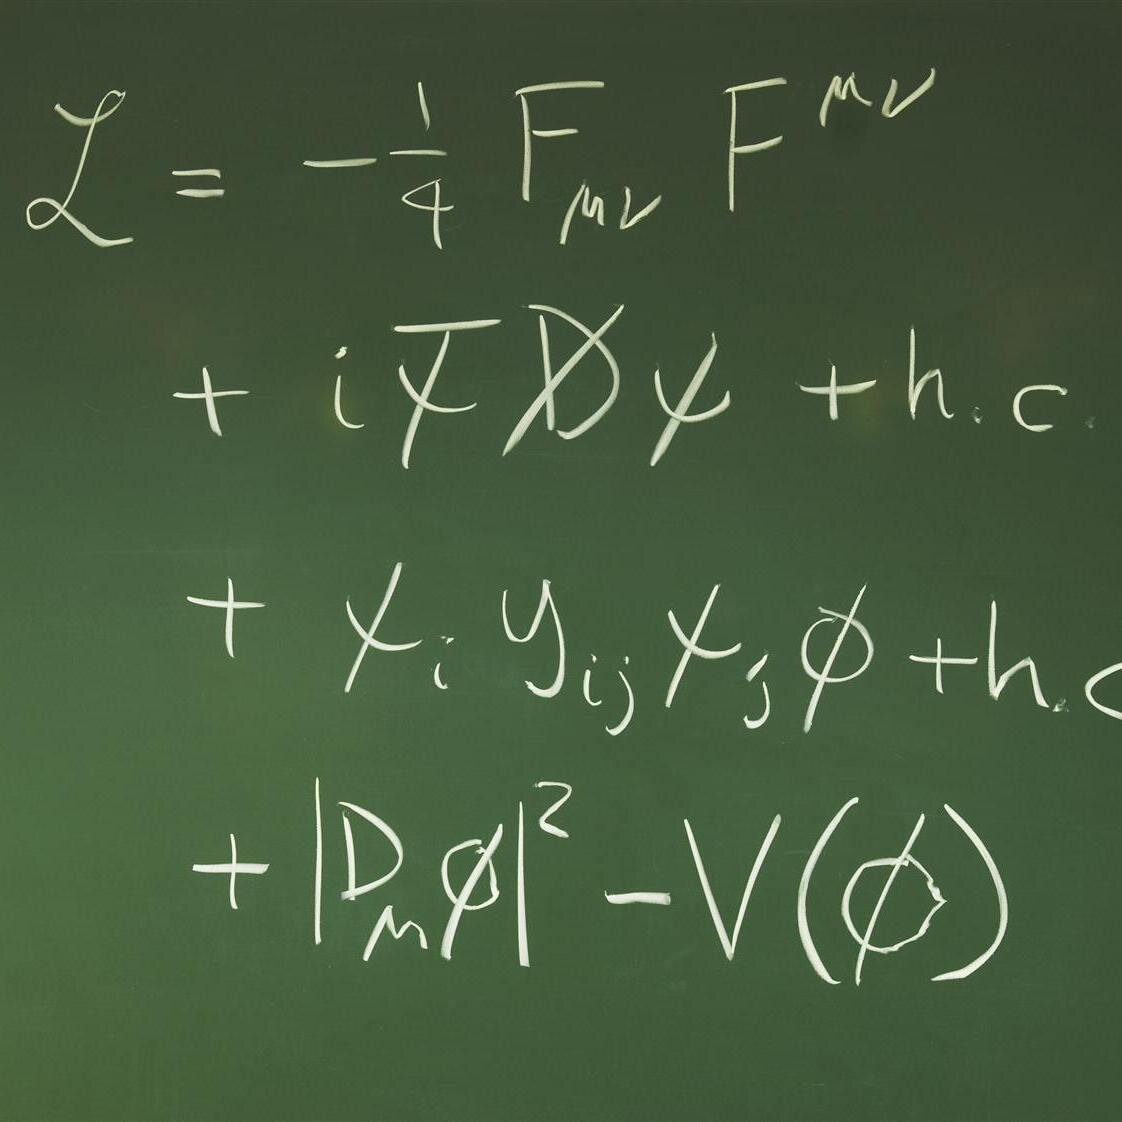 ℒ = -¼ F_μν F^μν
+ i ψ̄ D̸ ψ + h.c.
+ χ_i y_ij χ_j ϕ + h.c
+ |D_μ ϕ|² - V(ϕ)